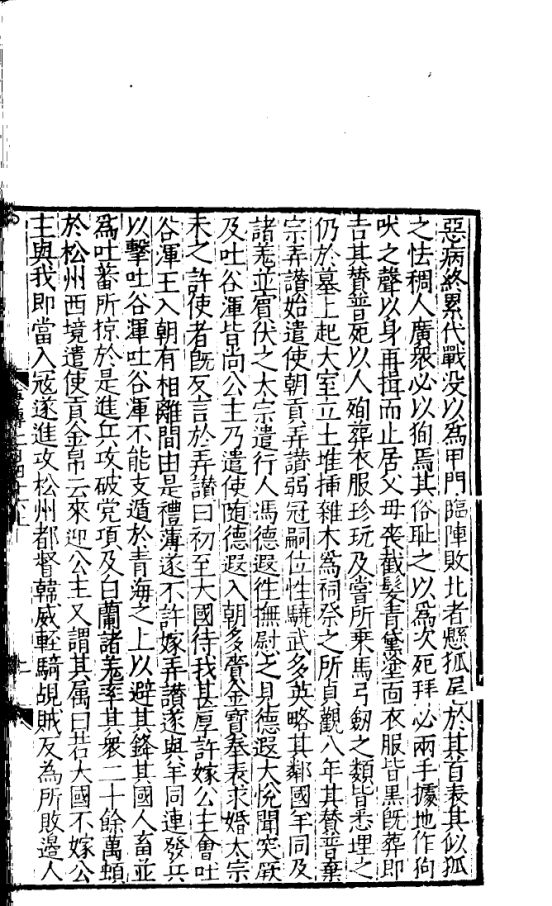 惡病終累代戰没以為甲門臨陣敗北者懸狐尾於其首表其似狐
之怯稠人廣衆必以徇焉其俗耻之以為次死拜必兩手據地作狗
吠之聲以身再揖而止居父母喪截髮青黛塗面衣服皆黑旣葬即
吉其賛普死以人殉葬衣服珍玩及嘗所乗馬弓劒之類皆悉埋之
仍於墓上起大室立土堆揷雜木為祠祭之所貞觀八年其賛普棄
宗弄讃始遣使朝貢弄讃弱冠嗣位性驍武多英略其鄰國羊同及
諸羌並賓伏之太宗遣行人馮德遐徃撫慰之見德遐大悅聞突厥
及吐谷渾皆尚公主乃遣使随德遐入朝多賫金寶奉表求婚太宗
未之許使者旣反言於弄讃曰初至大國待我甚厚許嫁公主會吐
谷渾王入朝有相離間由是禮薄遂不許嫁弄讃遂與羊同連發兵
以擊吐谷渾吐谷渾不能支遁於青海之上以避其鋒其國人畜並
為吐蕃所掠於是進兵攻破党項及白蘭諸羌率其衆二十餘萬頓
於松州西境遣使貢金帛云來迎公主又謂其属曰若大國不嫁公
主與我即當入寇遂進攻松州都督韓威輕騎覘賊反為所敗邉人